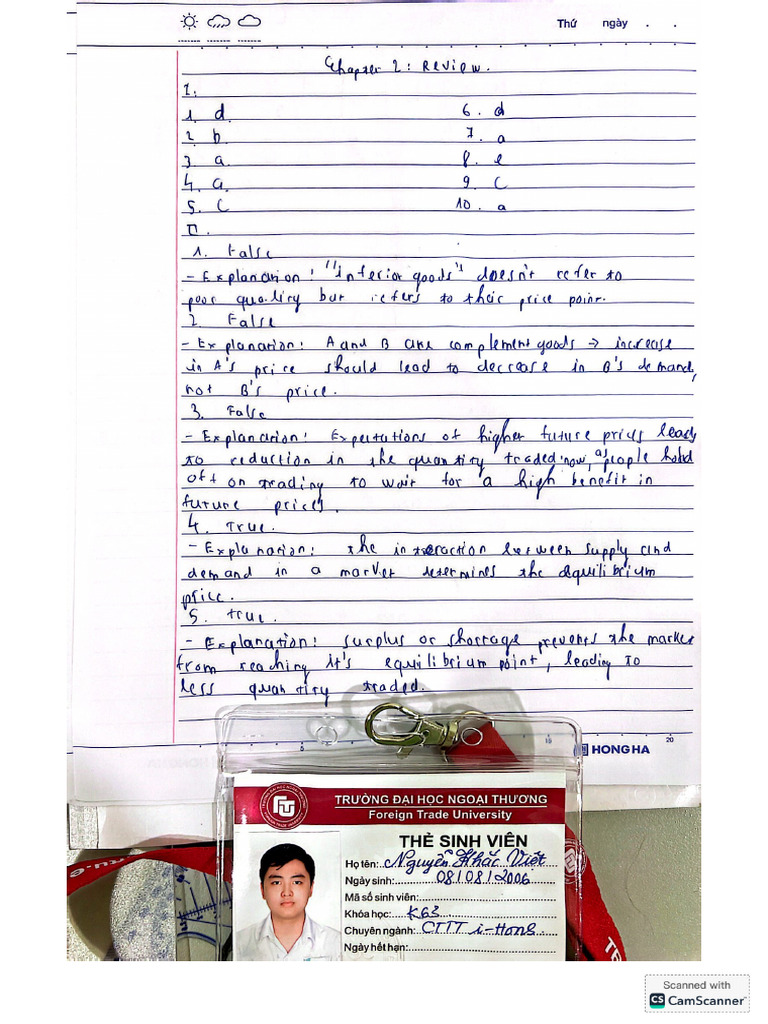 Thứ ngày . .
Chapter 2: Review.
I.
1. d. 6. d
2 b 7. a
3 a. 8. e
4. a. 9. C
5. C 10. a
II.
1. False
- Explanation: "inferior goods" doesn't refer to
poor quality but refers to their price point.
2. False
- Explanation: A and B are complement goods → increase
in A's price should lead to decrease in B's demand,
not B's price.
3. False
- Explanation: Expectations of higher future prices leads
to reduction in the quantity traded now, as people hold
off on trading to wait for a high benefit in
future prices.
4. True.
- Explanation: the interaction between supply and
demand in a market determines the equilibrium
price.
5. true.
- Explanation: surplus or shortage prevents the market
from reaching it's equilibrium point, leading to
less quantity traded.
5 15 20
HONG HA
TRƯỜNG ĐẠI HỌC NGOẠI THƯƠNG
Foreign Trade University
THẺ SINH VIÊN
Họ tên: Nguyễn Khắc Việt
Ngày sinh: 08/08/2006
Mã số sinh viên:
Khóa học: K63
Chuyên ngành: CTTT i-Hons
Ngày hết hạn:
Scanned with
CS CamScanner